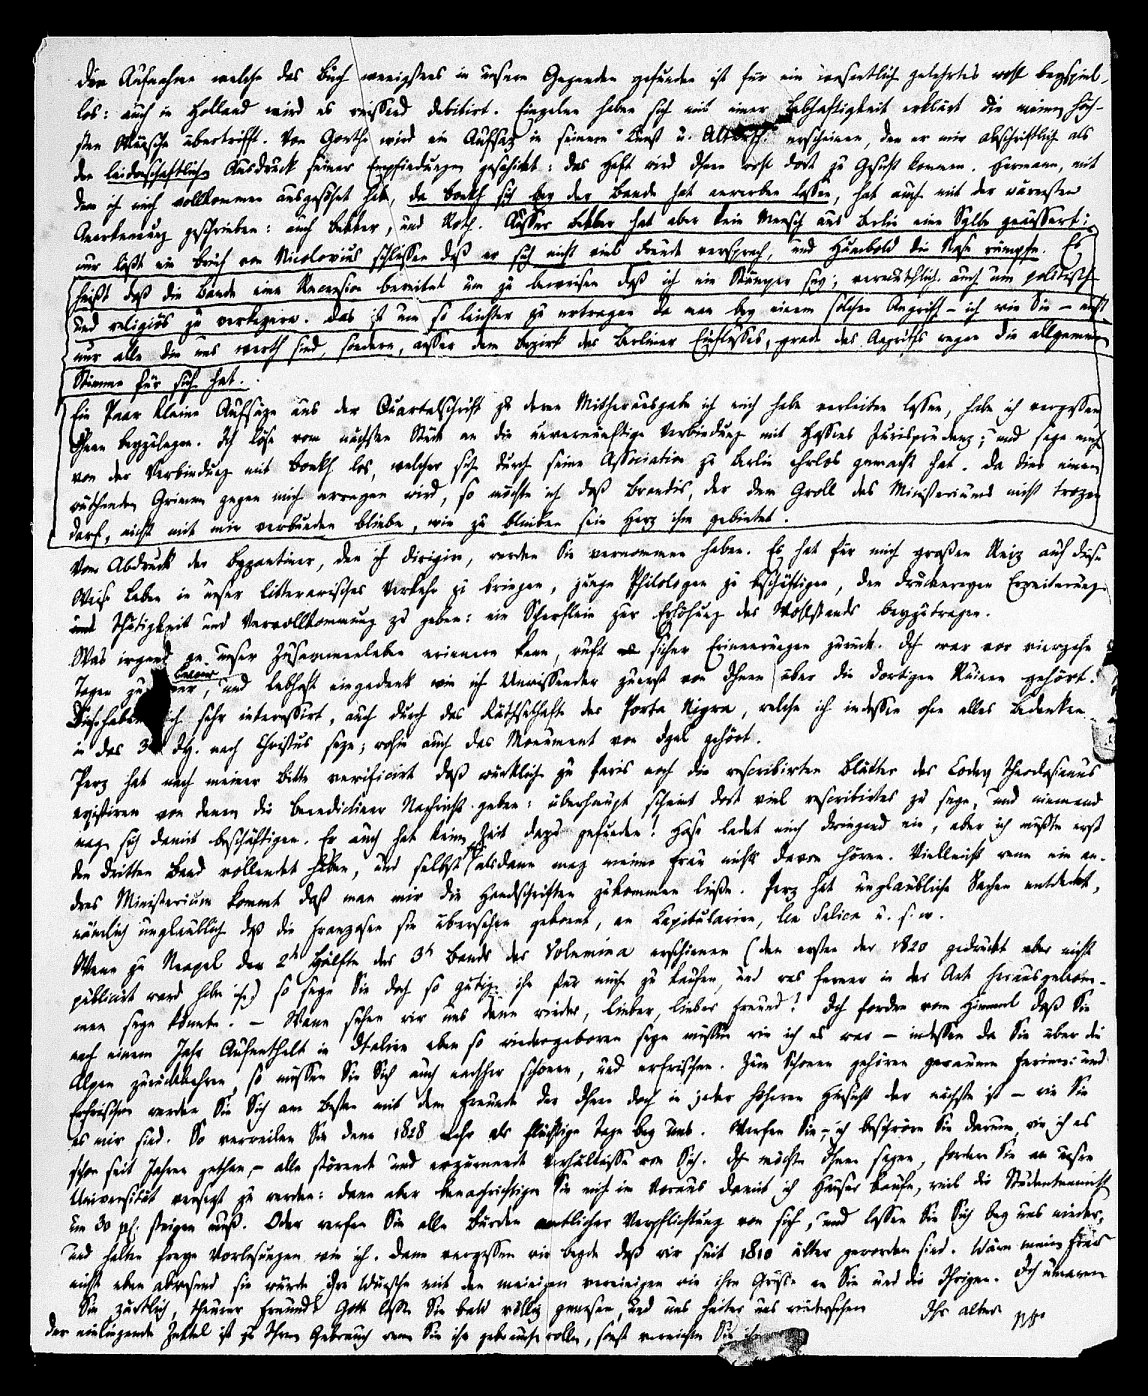 Die Aufnahme welche das Buch wenigstens in unsern Gegenden gefunden ist für ein wesentlich gelehrtes wohl beyspiel-
los: auch in Holland wird es reissend debitirt. Einzelne haben sich mit einer Lebhaftigkeit erklärt die meine höch-
sten Wünsche übertrifft. Von Goethe wird ein Aufsatz in seinem Kunst u. erscheinen, den er mir abschriftlich als
den leidenschaftlichen Ausdruck seiner Empfindungen geschickt: das Heft wird Ihnen wohl dort zu Gesicht kommen. Hermann, mit
dem ich mich vollkommen ausgesöhnt habe, da Boekh sich bey der Bande hat anwerben lassen, hat auch mit der wärmsten
Anerkennung geschrieben: auch Bekker, und Roth. Ausser Bekker hat aber kein Mensch aus Berlin eine Sylbe geäussert:
nur läßt ein Brief von Nicolovius schliessen daß er sich nicht viel Freude versprach, und Humbold die Nase rümpfe. Es
heißt daß die Bande eine Recension bereitet um zu beweisen daß ich ein Stümper sey; vermuthlich auch um politisch
und religiös zu verketzern. Das ist um so leichter zu ertragen da man bey einem solchen Angriff – ich wie Sie – nicht
nur alle die uns werth sind, sondern, ausser dem Bezirk des Berliner Einflusses, grade des Angriffs wegen die allgemeine
Stimme für sich hat.
Ein Paar kleine Aufsäze aus der Quartalschrift zu deren Mitherausgabe ich mich habe verleiten lassen, habe ich vergessen
Ihnen beyzulegen. Ich löse vom nächsten Stück an die unvernünftige Verbindung mit Hasses Jurisprudenz; und sage mich
von der Verbindung mit Boekh los, welcher sich durch seine Association zu Berlin ehrlos gemacht hat. Da dies einen
wüthenden Grimm gegen mich erregen wird, so möchte ich daß Brandis, der dem Groll des Ministeriums nicht trozen
darf, nicht mit mir verbunden bliebe, wie zu bleiben sein Herz ihm gebietet.
Vom Abdruck der Byzantiner, den ich dirigire, werden Sie vernommen haben. Es hat für mich großen Reiz auf diese
Weise Leben in unser litterarisches Verkehr zu bringen, junge Philologen zu beschäftigen, den Druckereyen Erweiterung
Thätigkeit und Vervollkommnung zu geben: ein Scherflein zur Erhöhung des Wohlstands beyzutragen.
Was irgend an unser Zusammenleben erinnern kann, ruft sicher Erinnerungen zurück. Ich war vor vierzehn
Tagen zu und lebhaft eingedenk wie ich Unwissender zuerst von Ihnen über die dortigen Ruinen gehört.
sehr interessirt, auch durch das Räthselhafte der Porta Nigra, welche ich indessen ohne alles Bedenken
in das 3te Jh. nach Christus seze; wohin auch das Monument von Igel gehört.
Perz hat nach meiner Bitte verificirt daß würklich zu Paris noch die rescribirten Blätter des Codex Theodosianus
existiren von denen die Benedictiner Nachricht geben: überhaupt scheint dort viel rescribirtes zu seyn, und niemand
mag sich damit beschäftigen. Er auch hat keine Zeit dazu gefunden! Hase ladet mich dringend ein, aber ich müßte erst
den dritten Band vollendet haben, und selbst alsdann mag meine Frau nichts davon hören. Vielleicht wenn ein an-
dres Ministerium kommt daß man mir die Handschriften zukommen ließe. Perz hat unglaubliche Sachen entdeckt,
nämlich unglaublich daß die Franzosen sie übersehen gekonnt, an Kapitularien, Lex Salica u. s. w.
Wenn zu Neapel der 2te Hälfte des 3ten Bands der Volumina erschienen (den ersten der 1820 gedruckt aber nicht
publicirt ward habe ich) so seyn Sie doch so gütig ihn für mich zu kaufen, und was ferner in der Art herausgekom-
men seyn könnte. – Wann sehen wir uns denn wieder, lieber, liebster Freund? Ich fordre vom Himmel daß Sie
nach einem Jahr Aufenthalt in Italien eben so wiedergeboren seyn müssen wie ich es war – indessen da Sie über die
Alpen zurückkehren, so müssen Sie Sich auch nachher schonen, und erfrischen. Zum Schonen gehören geräume Ferien: und
Erfrischen werden Sie Sich am Besten mit dem Freunde der Ihnen doch in jeder höheren Hinsicht der nächste ist – wie Sie
es mir sind. So verweilen Sie denn 1828 mehr als flüchtige Tage bey uns. Werfen Sie, ich beschwöre Sie darum, wie ich es
schon seit Jahren gethan, – alle störende und erzürnende Verhältnisse von Sich. Ich möchte Ihnen sagen, fordern Sie an unsre
Universität versezt zu werden: dann aber benachrichtigen Sie mich im Voraus damit ich Häuser kaufe, weil die Studentenmiethe
um 30 pC. steigen muß. Oder werfen Sie alle Bürden amtlicher Verpflichtung von sich, und lassen Sie Sich bey uns nieder,
und halten freye Vorlesungen wie ich. Dann vergessen wir beyde daß wir seit 1810 älter geworden sind. Wäre meine Frau
nicht eben abwesend sie würde ihre Wünsche mit den meinigen vereinigen wie ihre Grüße an Sie und die Ihrigen. Ich umarme
Sie zärtlich, theurer Freund! Gott lasse Sie bald völlig genesen, und uns heiter uns wiedersehen Ihr alter
der einliegende Zettel ist zu Ihrem Gebrauch wenn Sie ihn gebrauchen wollen, sonst vernichten Sie